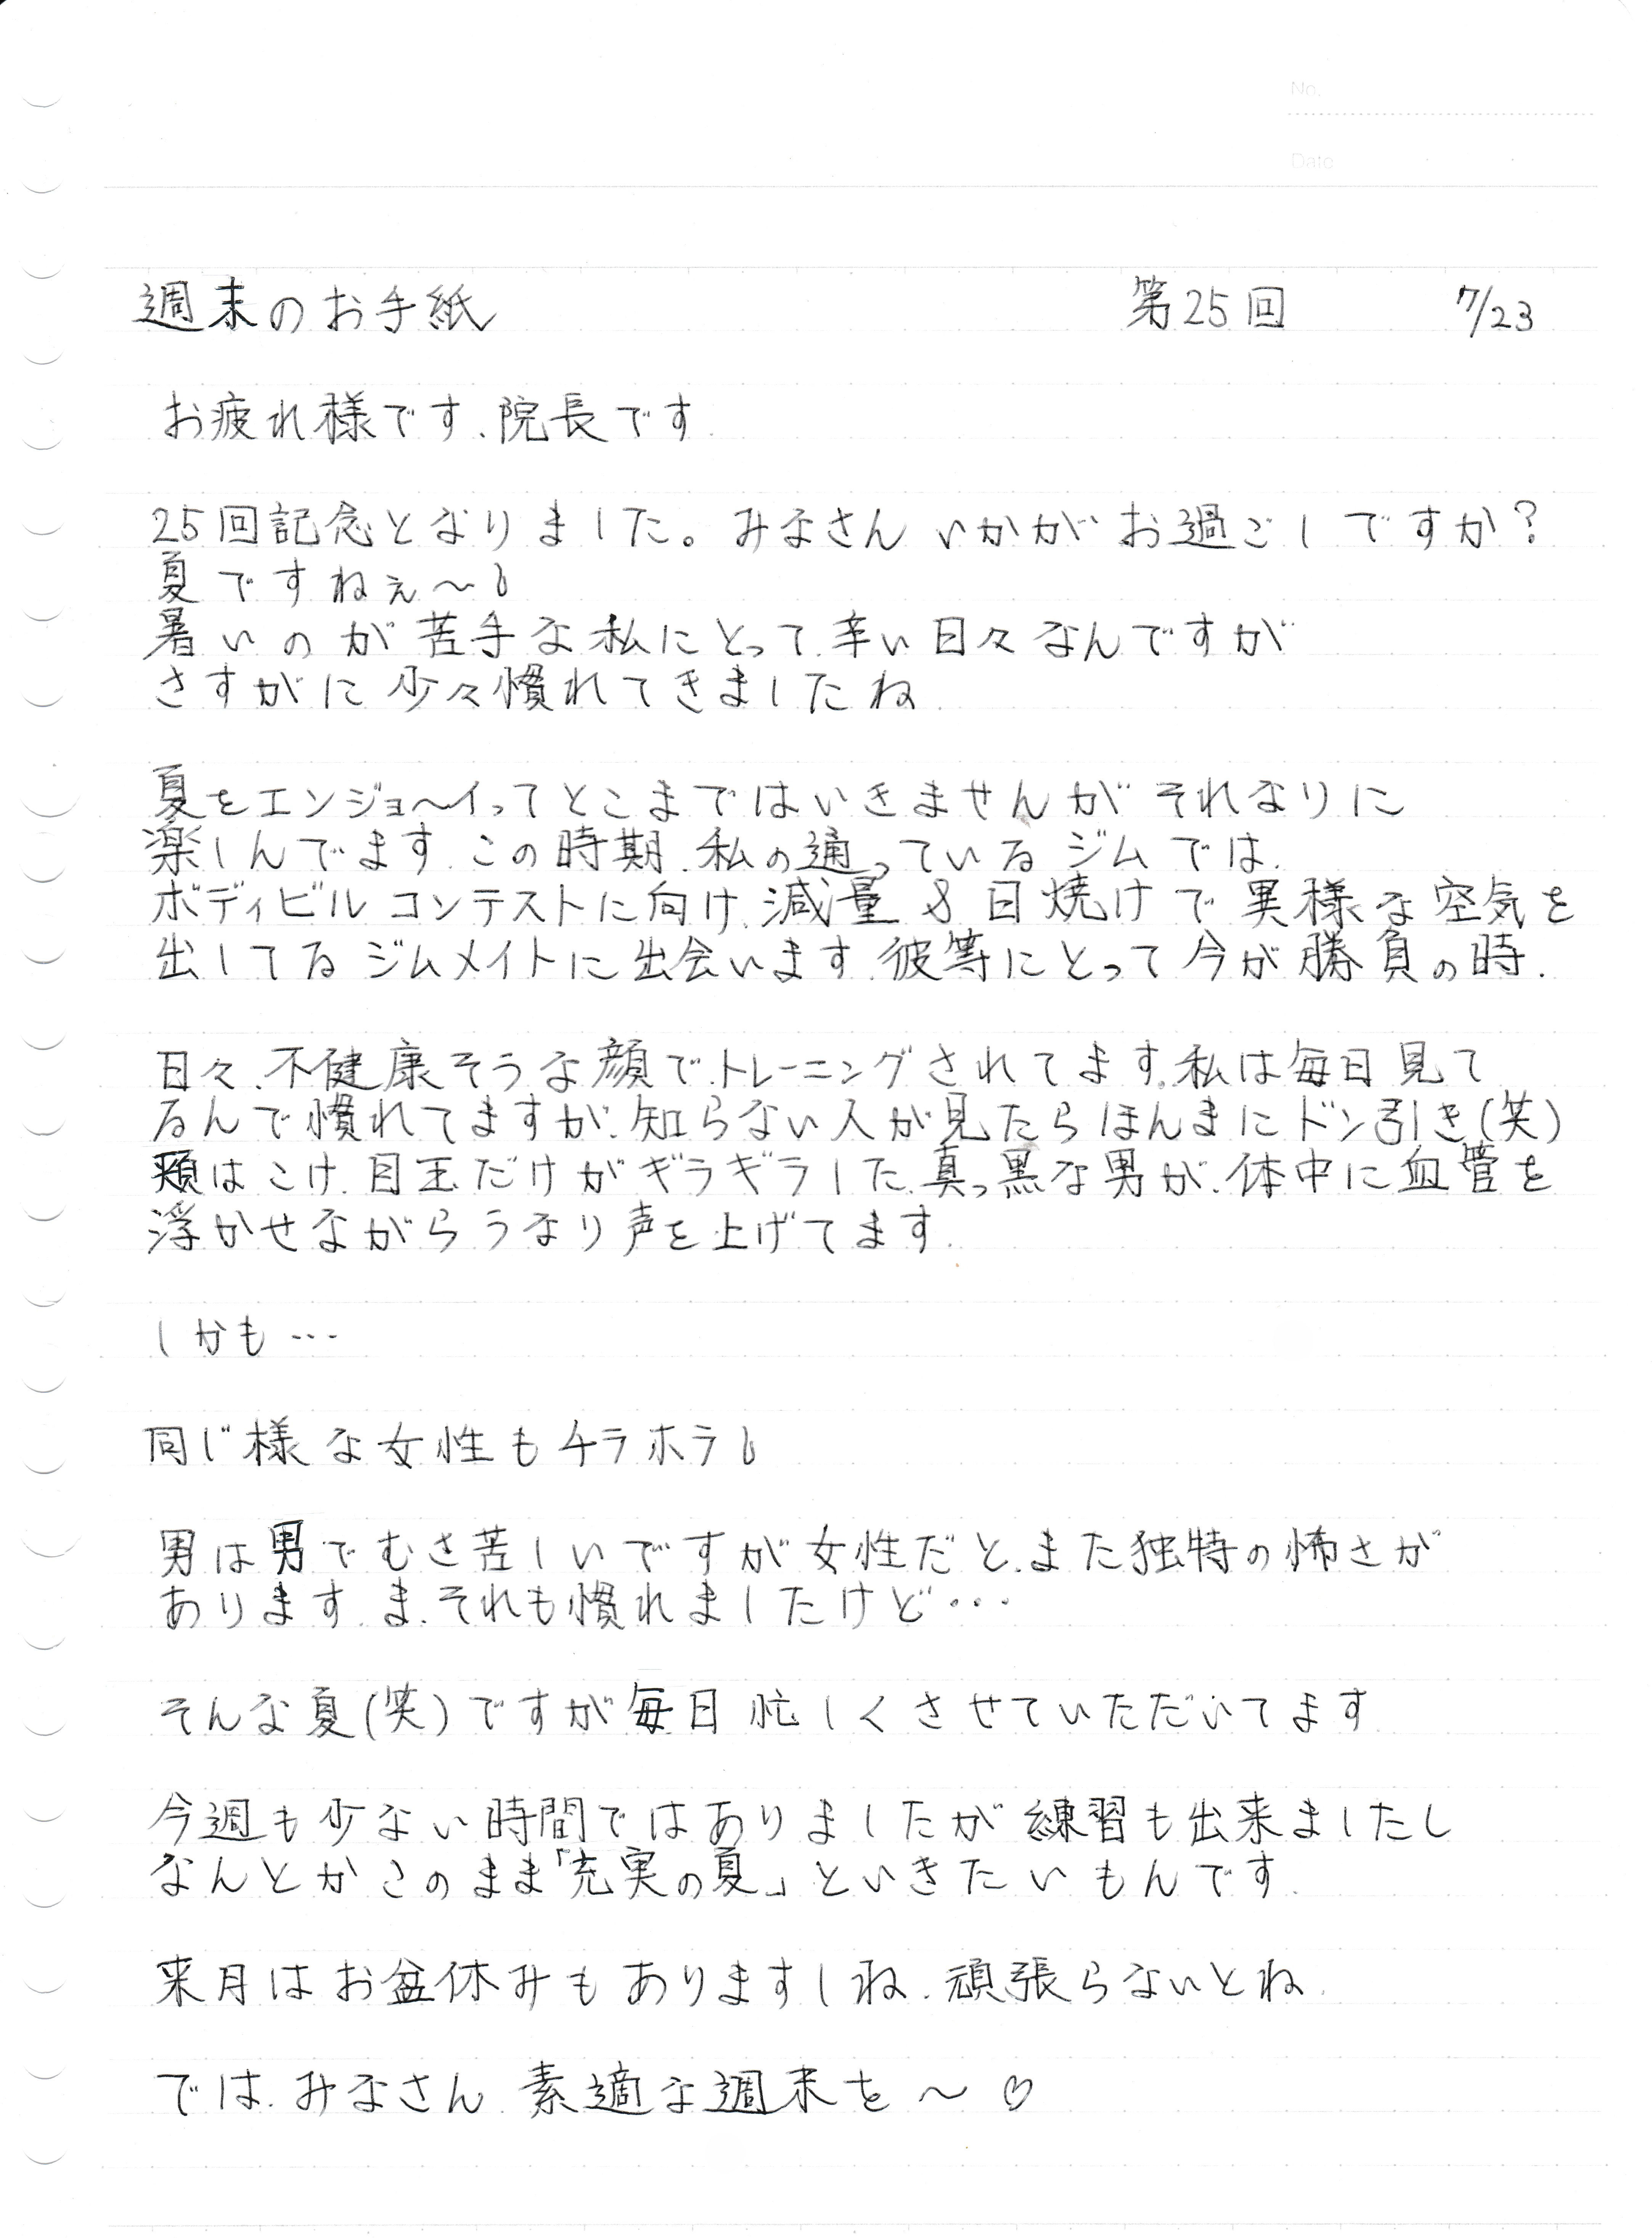 No.
Date
週末のお手紙 第25回 7/23
お疲れ様です、院長です
25回記念となりました。みなさんいかがお過ごしですか?
夏ですねぇ〜
暑いのが苦手な私にとって辛い日々なんですが
さすがに少々慣れてきましたね
夏をエンジョ〜イってとこまではいきませんがそれなりに
楽しんでます、この時期、私の通っているジムでは、
ボディビルコンテストに向け、減量&日焼けで異様な空気を
出してるジムメイトに出会います、彼等にとって今が勝負の時、
日々、不健康そうな顔でトレーニングされてます、私は毎日見て
るんで慣れてますが、知らない人が見たらほんまにドン引き(笑)
頬はこけ、目玉だけがギラギラした、真っ黒な男が、体中に血管を
浮かせながらうなり声を上げてます、
しかも…
同じ様な女性もチラホラ
男は男でむさ苦しいですが女性だと、また独特の怖さが
あります、ま、それも慣れましたけど…
そんな夏(笑)ですが毎日忙しくさせていただいてます
今週も少ない時間ではありましたが練習も出来ましたし
なんとかこのまま「充実の夏」といきたいもんです、
来月はお盆休みもありますしね、頑張らないとね、
では、みなさん、素適な週末を〜♡